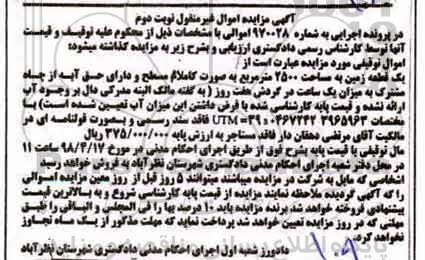 آگهی مزایده اموال غیرمنقول نوبت دوم
در پرونده اجرایی به شماره ۹۷۰۰۲۸ اموالی با مشخصات ذیل از محکوم علیه توقیف و قیمت
آنها توسط کارشناس رسمی دادگستری ارزیابی و بشرح زیر به مزایده گذاشته میشود:
اموال توقیفی مورد مزایده عبارت است از
یک قطعه زمین به مساحت ۲۵۰۰ مترمربع به صورت کاملا مسطح و دارای حق آبه از چاه
مشترک به میزان یک ساعت در گردش هفت روز (به گفته مالک البته مدرکی دال بر وجود آب
ارائه نشده و قیمت پایه کارشناسی شده با فرض داشتن این میزان آب تعیین شده است) با
مختصات ۳۹۶۵۹۶۳ ۰۴۶۷۲۴۲ ۳۹=UTM فاقد سند رسمی و بصورت قولنامه ای در
مالکیت آقای مرتضی دهقان دار فاقد مستاجر به ارزش پایه ۳۷۵/۰۰۰/۰۰۰ ریال
مال توقیفی با قیمت پایه بشرح فوق از طریق اجرای احکام مدنی در مورخ ۹۸/۴/۱۲ ساعت ۱۱
در محل دفتر شعبه اجرای احکام مدنی دادگستری شهرستان نظرآباد به فروش خواهد رسید
اشخاصی که مایل به شرکت در مزایده میباشند میتوانند ۵ روز قبل از روز معین مزایده اموالی
را که آگهی گردیده ملاحظه نمایند مزایده از قیمت پایه کارشناسی شروع و به بالاترین قیمت
پیشنهادی فروخته خواهد شد برنده مزایده باید ۱۰ درصد بها را فی المجلس و الباقی را طبق
مهلتی که در روز مزایده تعیین خواهد شد پرداخت نماید که مهلت مذکور از یک ماه تجاوز
نخواهد کرد.
دادورز شعبه اول اجرای احکام مدنی دادگستری شهرستان نظرآباد